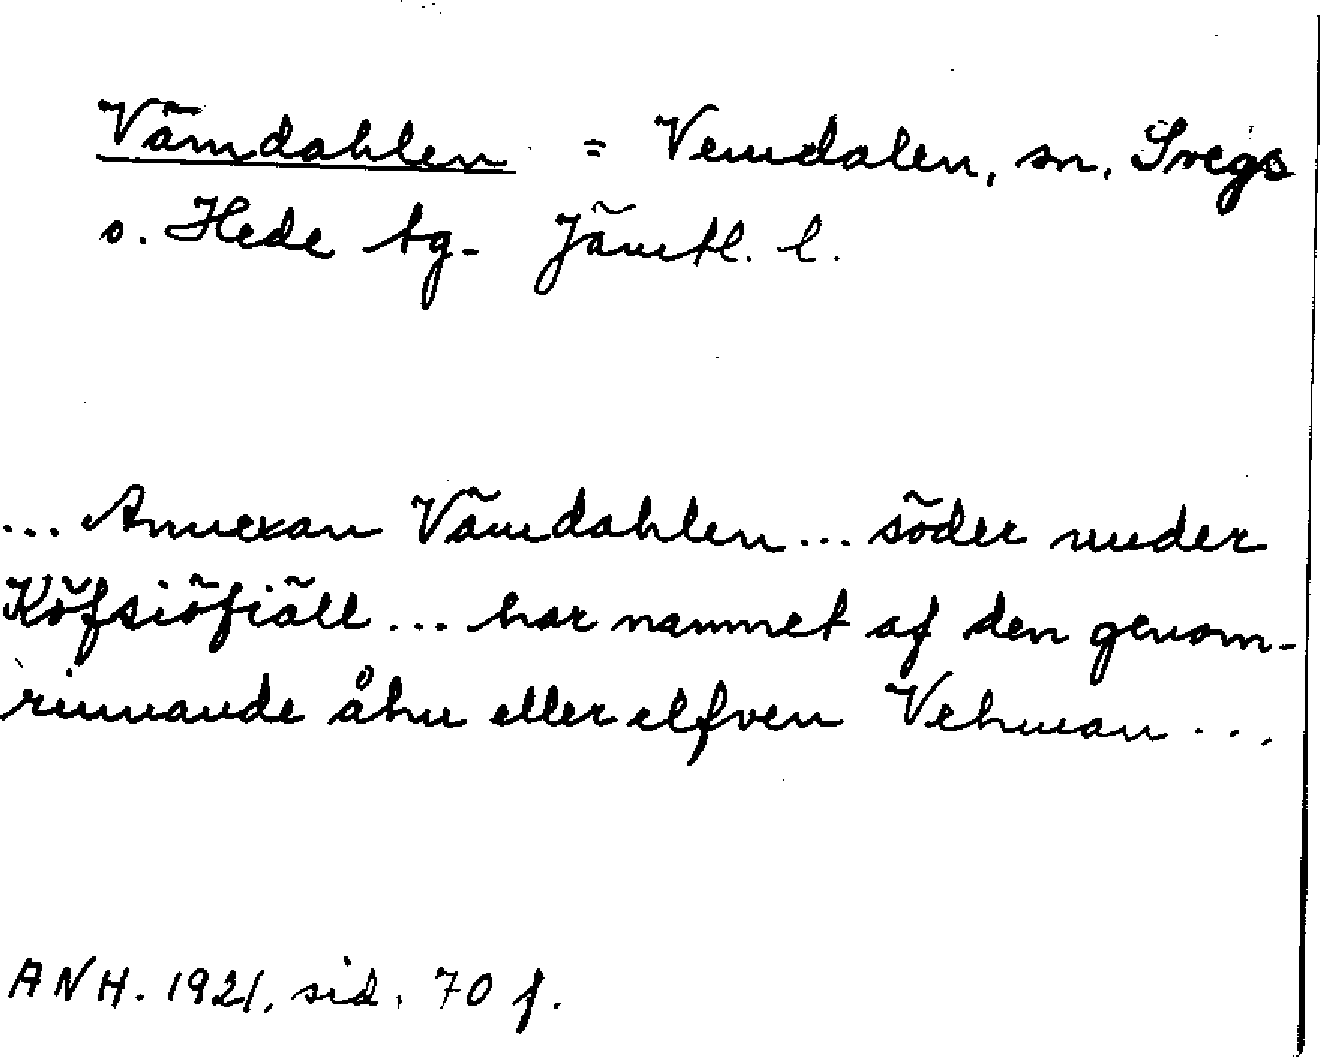 Vämdahlen = Vemdalen, sn, Svegs
o. Hede tg. Jämtl. l.
... Annexan Vämdahlen ... söder under
Köfsiöfiäll ... har namnet af den genom-
rinnande åhn eller elfven Vehman ...
ANH. 1921, sid. 70 f.